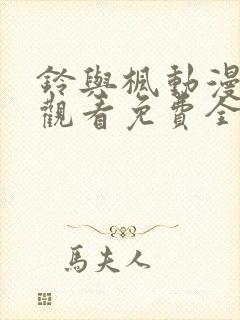 鈴與楓動漫
觀看免費全
馬夫人